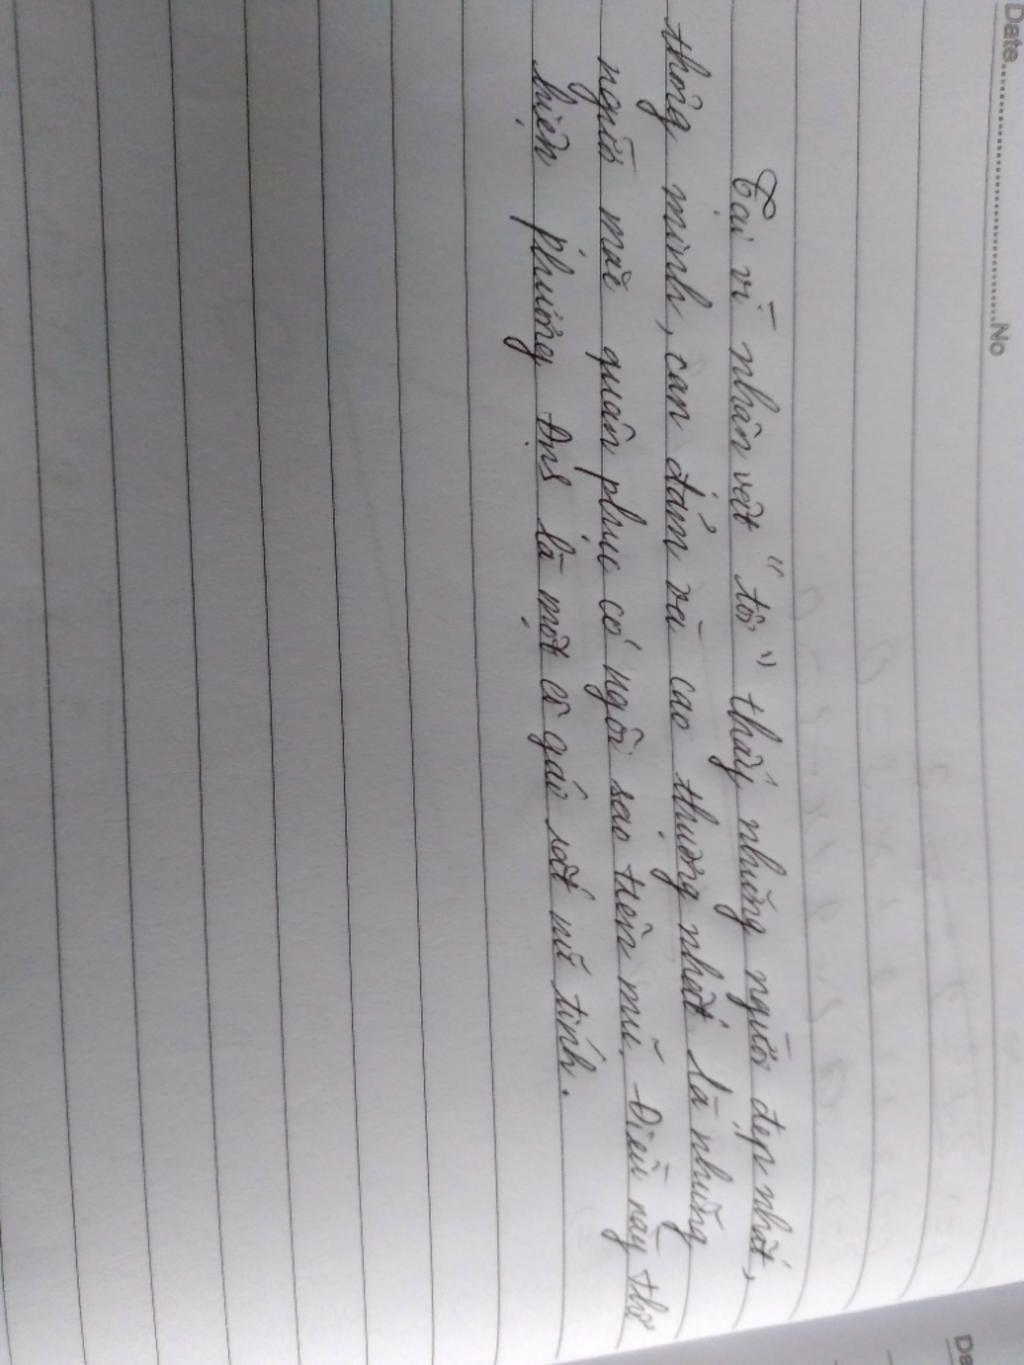 Date..............................No
Tại vì nhân vật "tôi" thấy những người đẹp nhất,
thông minh, can đảm và cao thượng nhất là những
người mặc quân phục có ngôi sao trên mũ. Điều này thể
hiện phương Định là một cô gái rất nữ tính.
Da